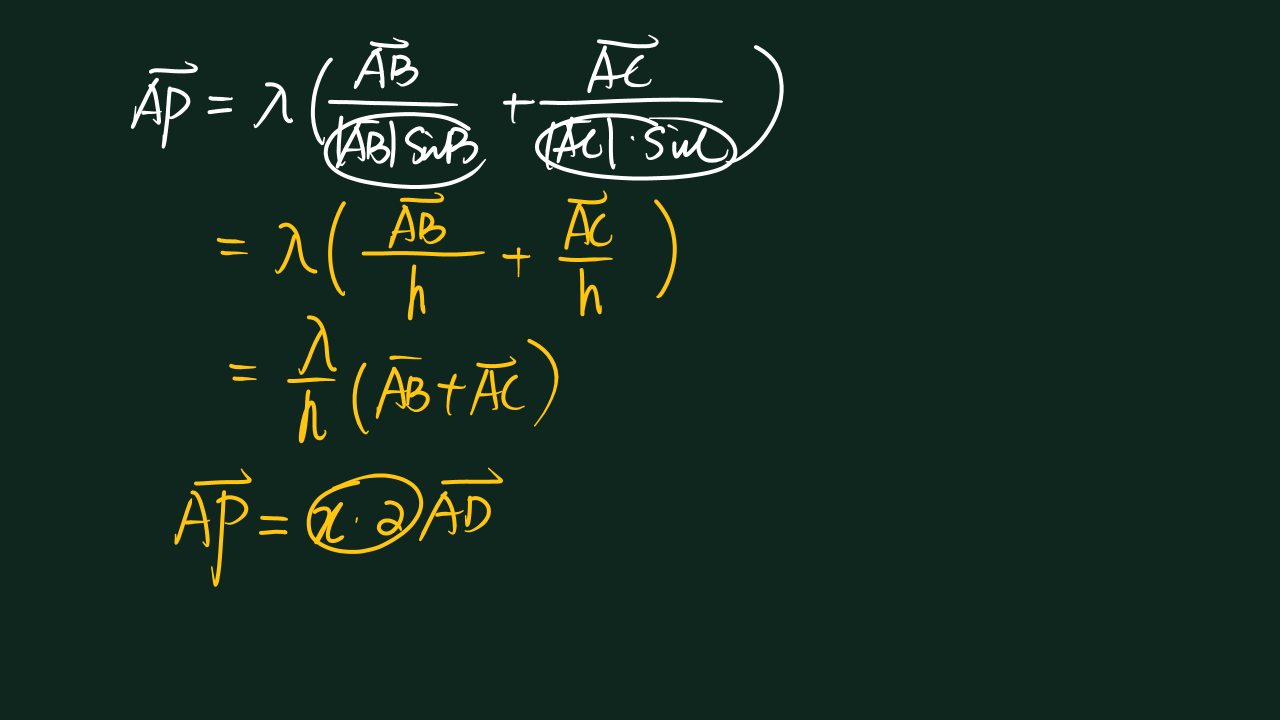 $\overrightarrow{AP} = \lambda \left( \frac{\overrightarrow{AB}}{|\overrightarrow{AB}| \sin B} + \frac{\overrightarrow{AC}}{|\overrightarrow{AC}| \cdot \sin C} \right)$
$= \lambda \left( \frac{\overrightarrow{AB}}{h} + \frac{\overrightarrow{AC}}{h} \right)$
$= \frac{\lambda}{h} ( \overline{AB} + \overrightarrow{AC} )$
$\overrightarrow{AP} = x \cdot 2 \overrightarrow{AD}$